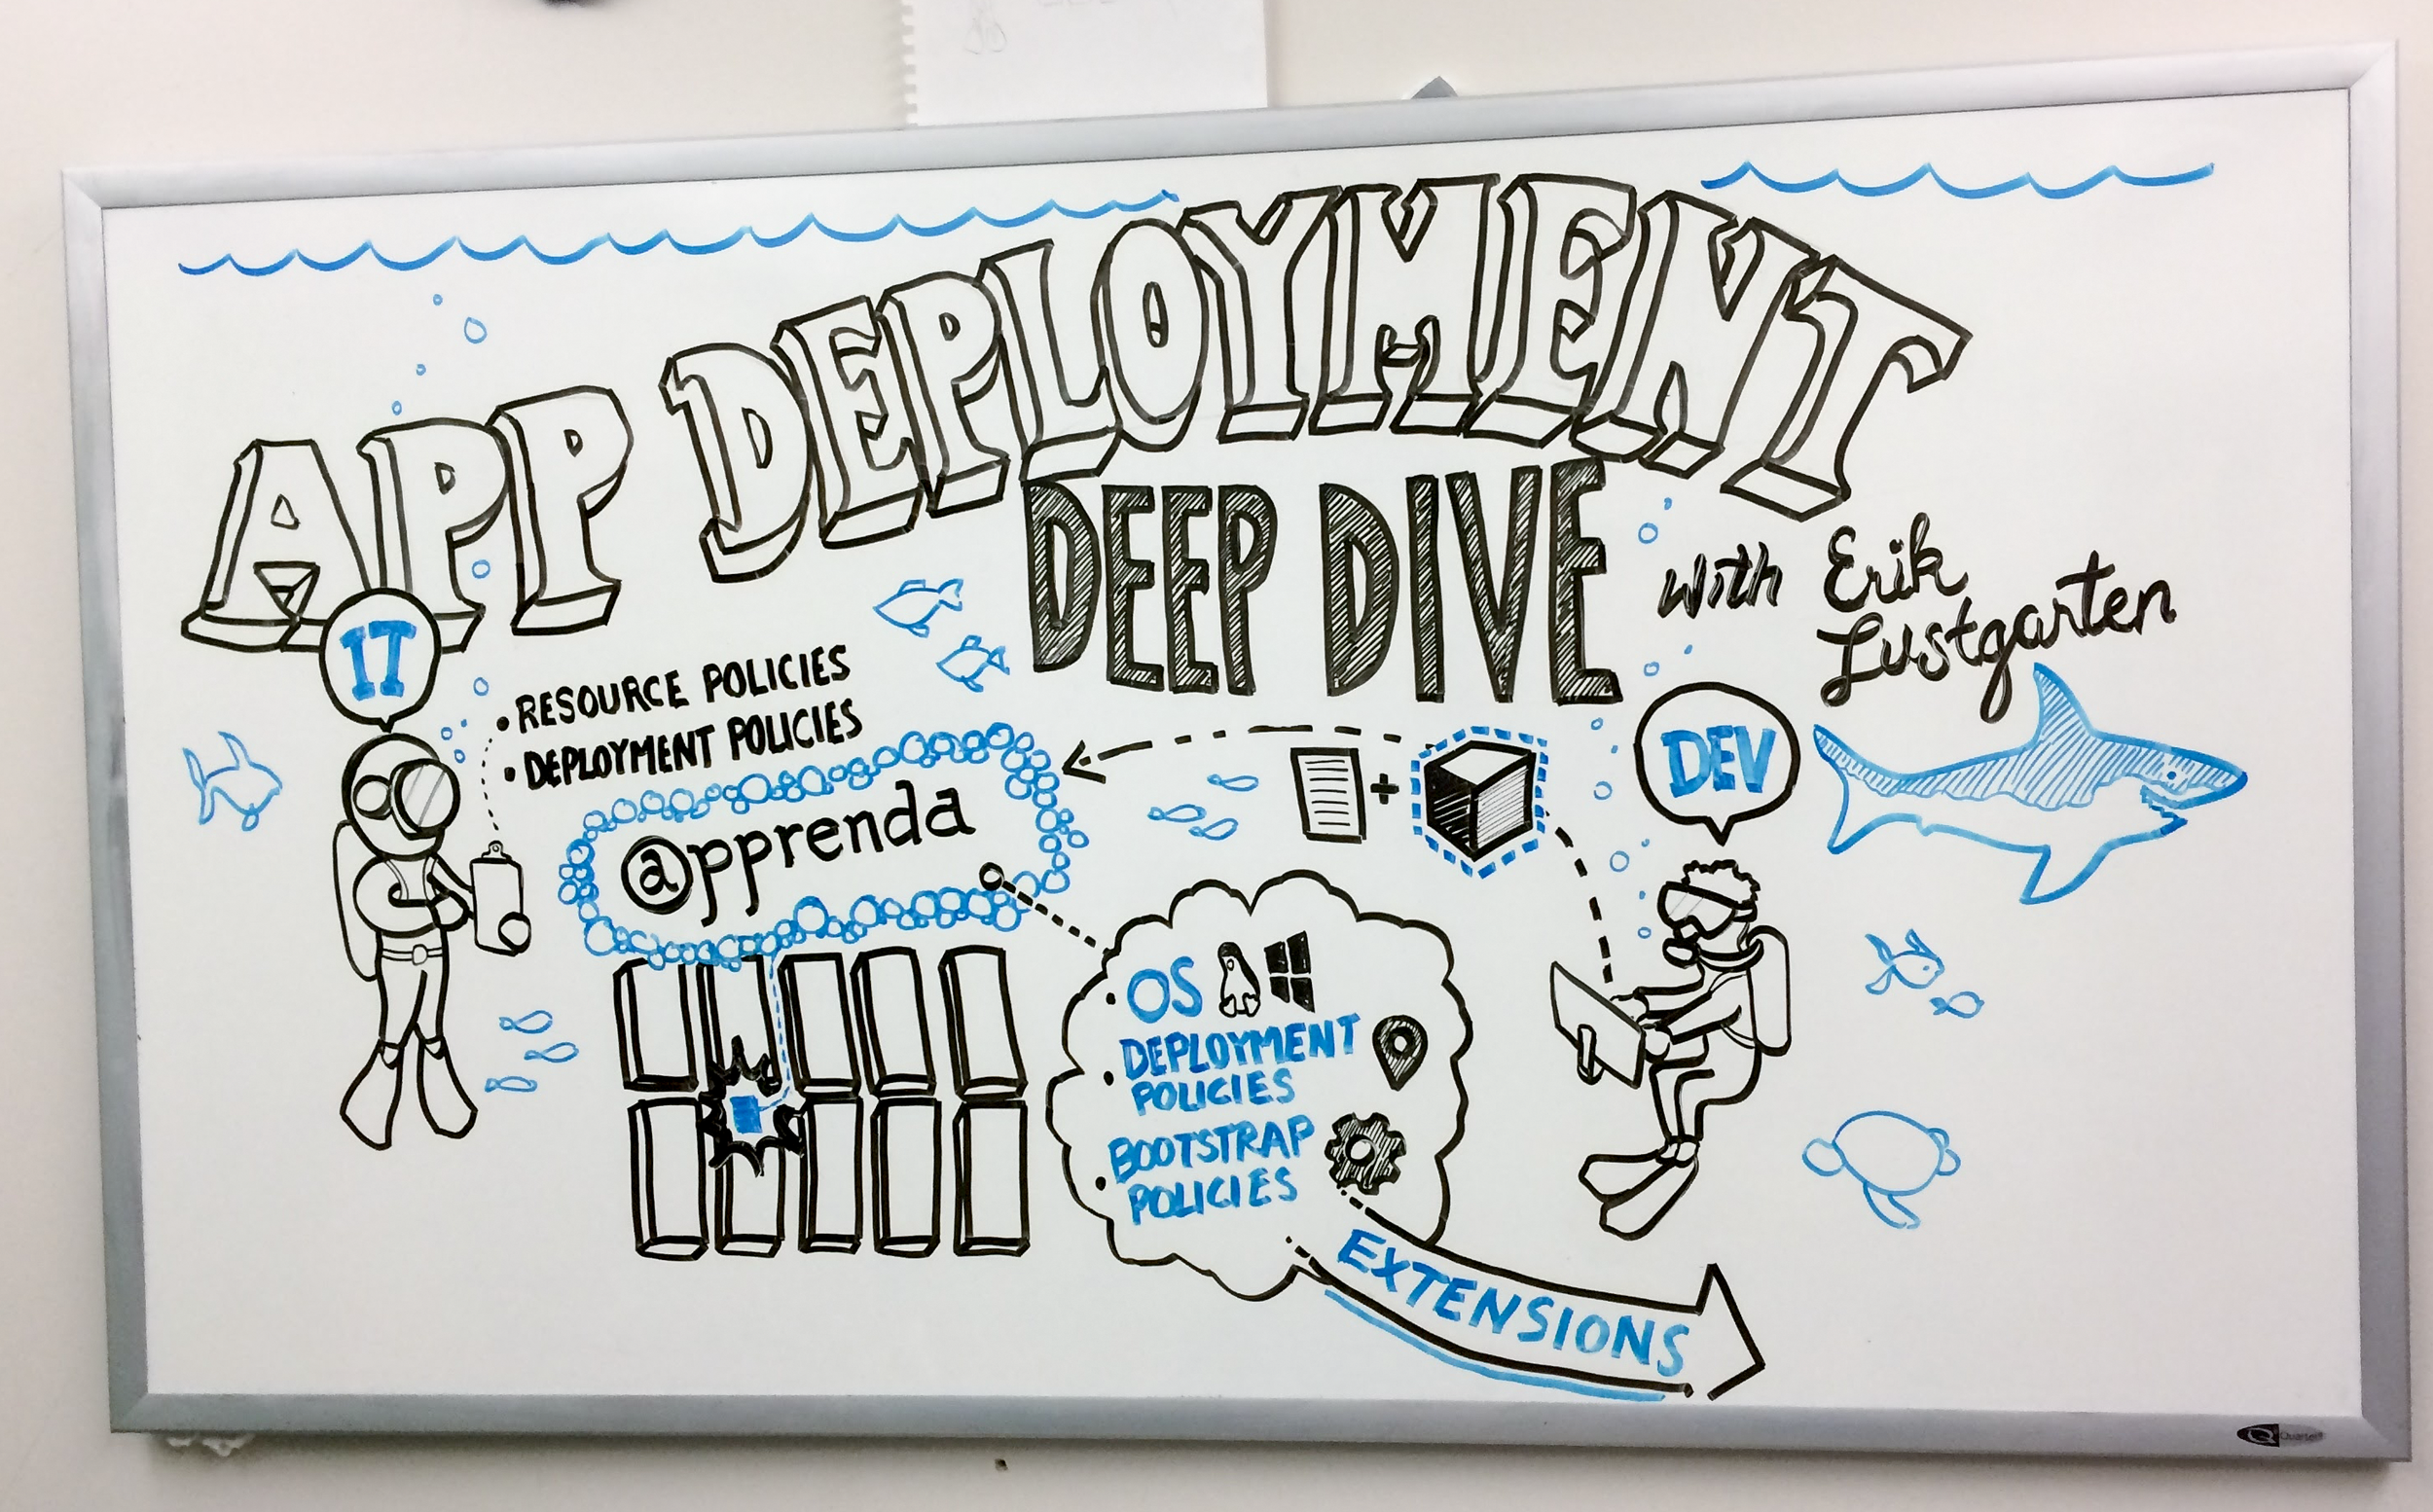 APP DEPLOYMENT
DEEP DIVE
with Erik
Lustgarten
IT
• RESOURCE POLICIES
• DEPLOYMENT POLICIES
@pprenda
+
DEV
• OS
• DEPLOYMENT
POLICIES
• BOOTSTRAP
POLICIES
EXTENSIONS
Quartet